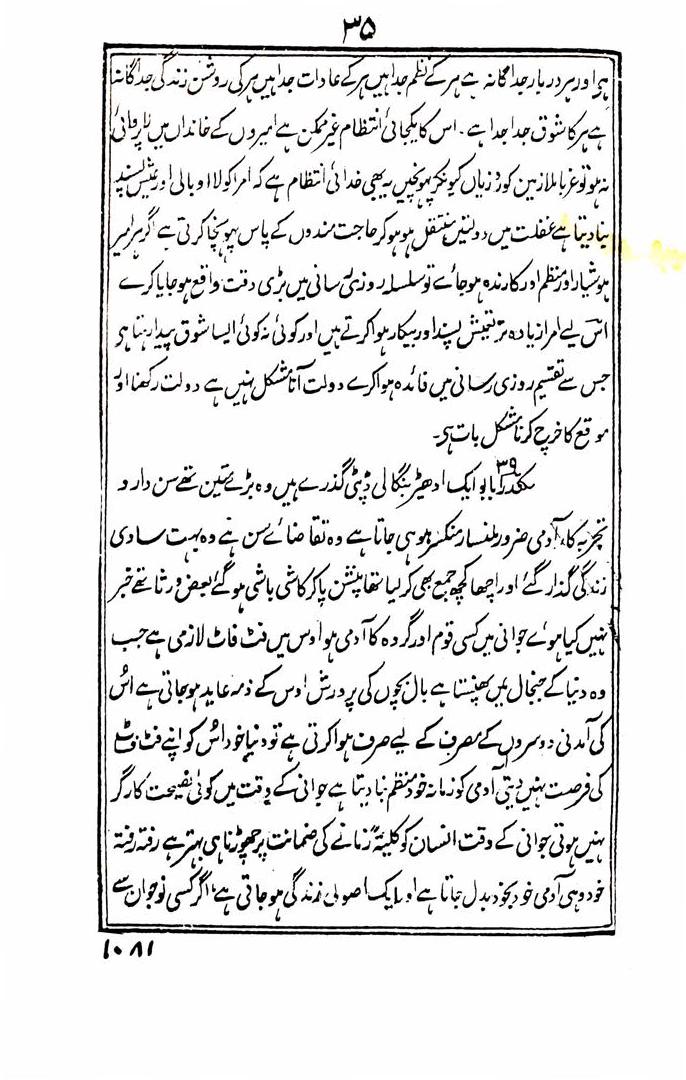 ۳۵
ہے اور ہر دربار جداگانہ ہے ہر کے نظم جدا ہیں ہر کے عادات جدا ہیں ہر کی روشن زندگی جداگانہ
ہے ہر کا شوق جدا جدا ہے۔ اس کا یکجائی انتظام غیر ممکن ہے امیروں کے خانداں میں لاپروائی
نہ ہو تو غربا ملازمین کو ذر زیاں کیونکر پہونچیں یہ بھی خدائی انتظام ہے کہ امرا کو لا اوبالی اور عیش پسند
بنا دیتا ہے غفلت میں دولتیں منتقل ہو ہو کر حاجت مندوں کے پاس پہونچا کرتی ہے اگر ہر امیر
ہوشیار اور منظم اور کارندہ ہو جائے تو سلسلہ روزی رسانی میں بڑی دقت واقع ہو جایا کرے
اس لیے امرا زیادہ تر تعیش پسند اور بیکار ہوا کرتے ہیں اور کوئی نہ کوئی ایسا شوق پیدا رہتا ہے
جس سے تقسیم روزی رسانی میں فائدہ ہوا کرے دولت آنا مشکل نہیں ہے دولت رکھنا اور
موقع کا خرچ کرنا مشکل بات ہے۔
۳۹ بابو ایک ادھیڑ بنگالی ڈپٹی گذرے ہیں وہ بڑے متین تھے سن دار و
تجربہ کار آدمی ضرور ملنسار منکسر ہو ہی جاتا ہے وہ تقاضائے سن ہے وہ بہت سادی
زندگی گذار گئے اور اچھا کچھ جمع بھی کر لیا تھا پنشن پا کر کاشی باشی ہو گئے بعض ورثا تھے خبر
نہیں کیا ہوے جوانی میں کسی قوم اور گروہ کا آدمی ہو اوس میں فٹ فاٹ لازمی ہے جب
وہ دنیا کے جنجال میں پھنستا ہے بال بچوں کی پرورش اوس کے ذمہ عاید ہو جاتی ہے اس
کی آمدنی دوسروں کے مصرف کے لیے صرف ہوا کرتی ہے تو دنیا خود اس کو اپنے فٹ فٹے
کی فرصت نہیں دیتی آدمی کو زمانہ خود منظم بنا دیتا ہے جوانی کے وقت میں کوئی نصیحت کارگر
نہیں ہوتی جوانی کے وقت انسان کو کلیۃً زمانے کی ضمانت پر چھوڑنا ہی بہتر ہے رفتہ رفتہ
خود وہی آدمی خود بخود بدل جاتا ہے اور ایک اصولی زندگی ہو جاتی ہے اگر کسی نوجوان سے
۱۰۸۱